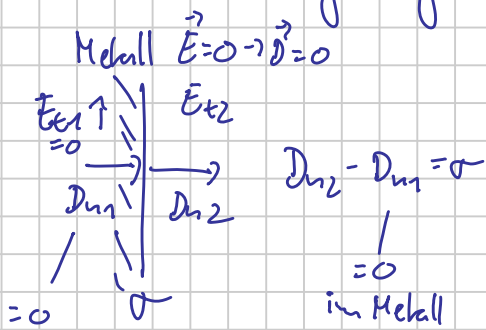 Metall E⃗=0 → D⃗=0
Et1 ↑ Et2
=0
Dn2 - Dn1 = σ
Dn1 Dn2
=0
=0 σ im Metall